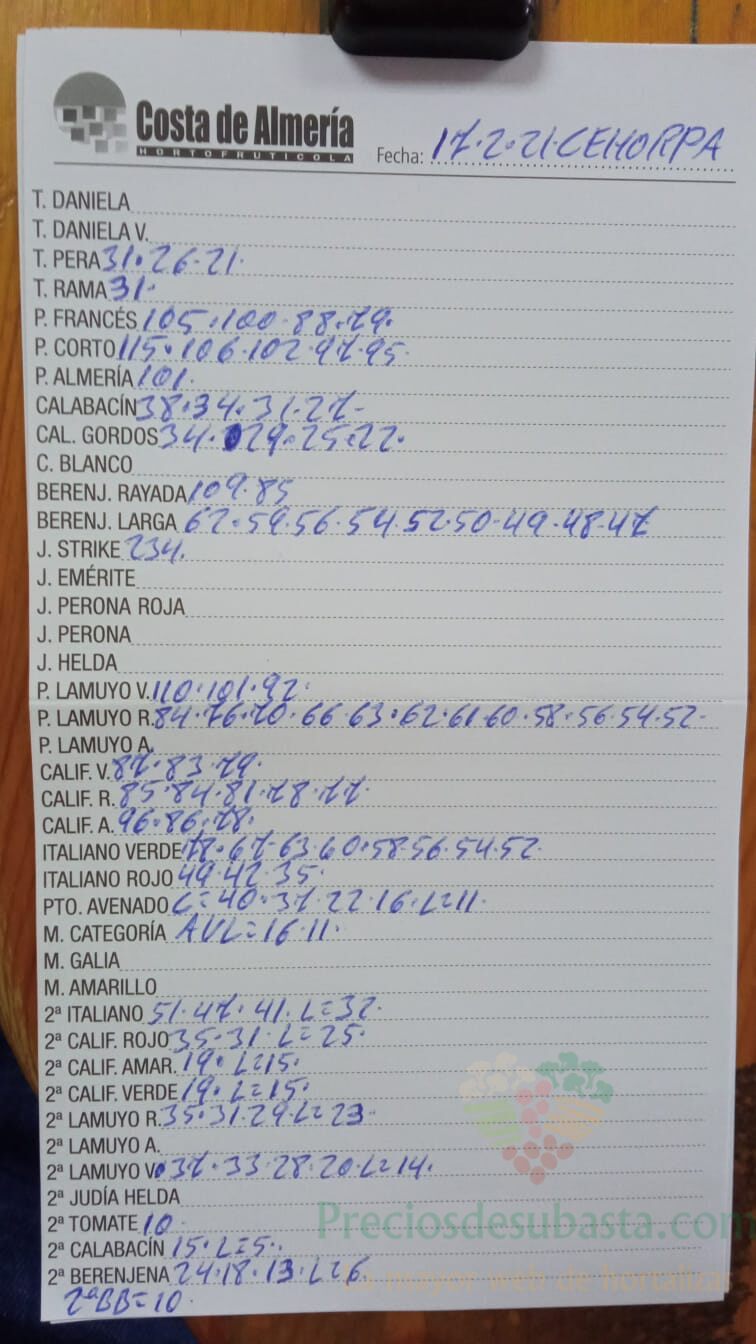 Costa de Almería
HORTOFRUTICOLA
Fecha: 17.2.21.CEHORPA
T. DANIELA
T. DANIELA V.
T. PERA 31.26.21.
T. RAMA 31.
P. FRANCÉS 105.100.88.79.
P. CORTO 115.106.102.97.95.
P. ALMERÍA 101.
CALABACÍN 38.34.31.27-
CAL. GORDOS 34.29.25.22.
C. BLANCO
BERENJ. RAYADA 109.85
BERENJ. LARGA 62.59.56.54.52.50.49.48.47
J. STRIKE 234.
J. EMÉRITE
J. PERONA ROJA
J. PERONA
J. HELDA
P. LAMUYO V. 110.101.92.
P. LAMUYO R. 84.76.70.66.63.62.61.60.58.56.54.52-
P. LAMUYO A.
CALIF. V. 87.83.79.
CALIF. R. 85.84.81.78.77.
CALIF. A. 96.86.78.
ITALIANO VERDE 78.67.63.60.58.56.54.52.
ITALIANO ROJO 49.42.35.
PTO. AVENADO C=40.37.22.16.L=11.
M. CATEGORÍA AVL=16.11.
M. GALIA
M. AMARILLO
2ª ITALIANO 51.47.41.L=32.
2ª CALIF. ROJO 35.31.L=25.
2ª CALIF. AMAR. 19.L=15.
2ª CALIF. VERDE 19.L=15.
2ª LAMUYO R. 35.31.29.L=23.
2ª LAMUYO A.
2ª LAMUYO V. 37.33.28.20.L=14.
2ª JUDÍA HELDA
2ª TOMATE 10.
Preciosdesubasta.com
2ª CALABACÍN 15.L=5.
2ª BERENJENA 24.18.13.L=6.
La mayor web de hortalizas
2ªBB=10.